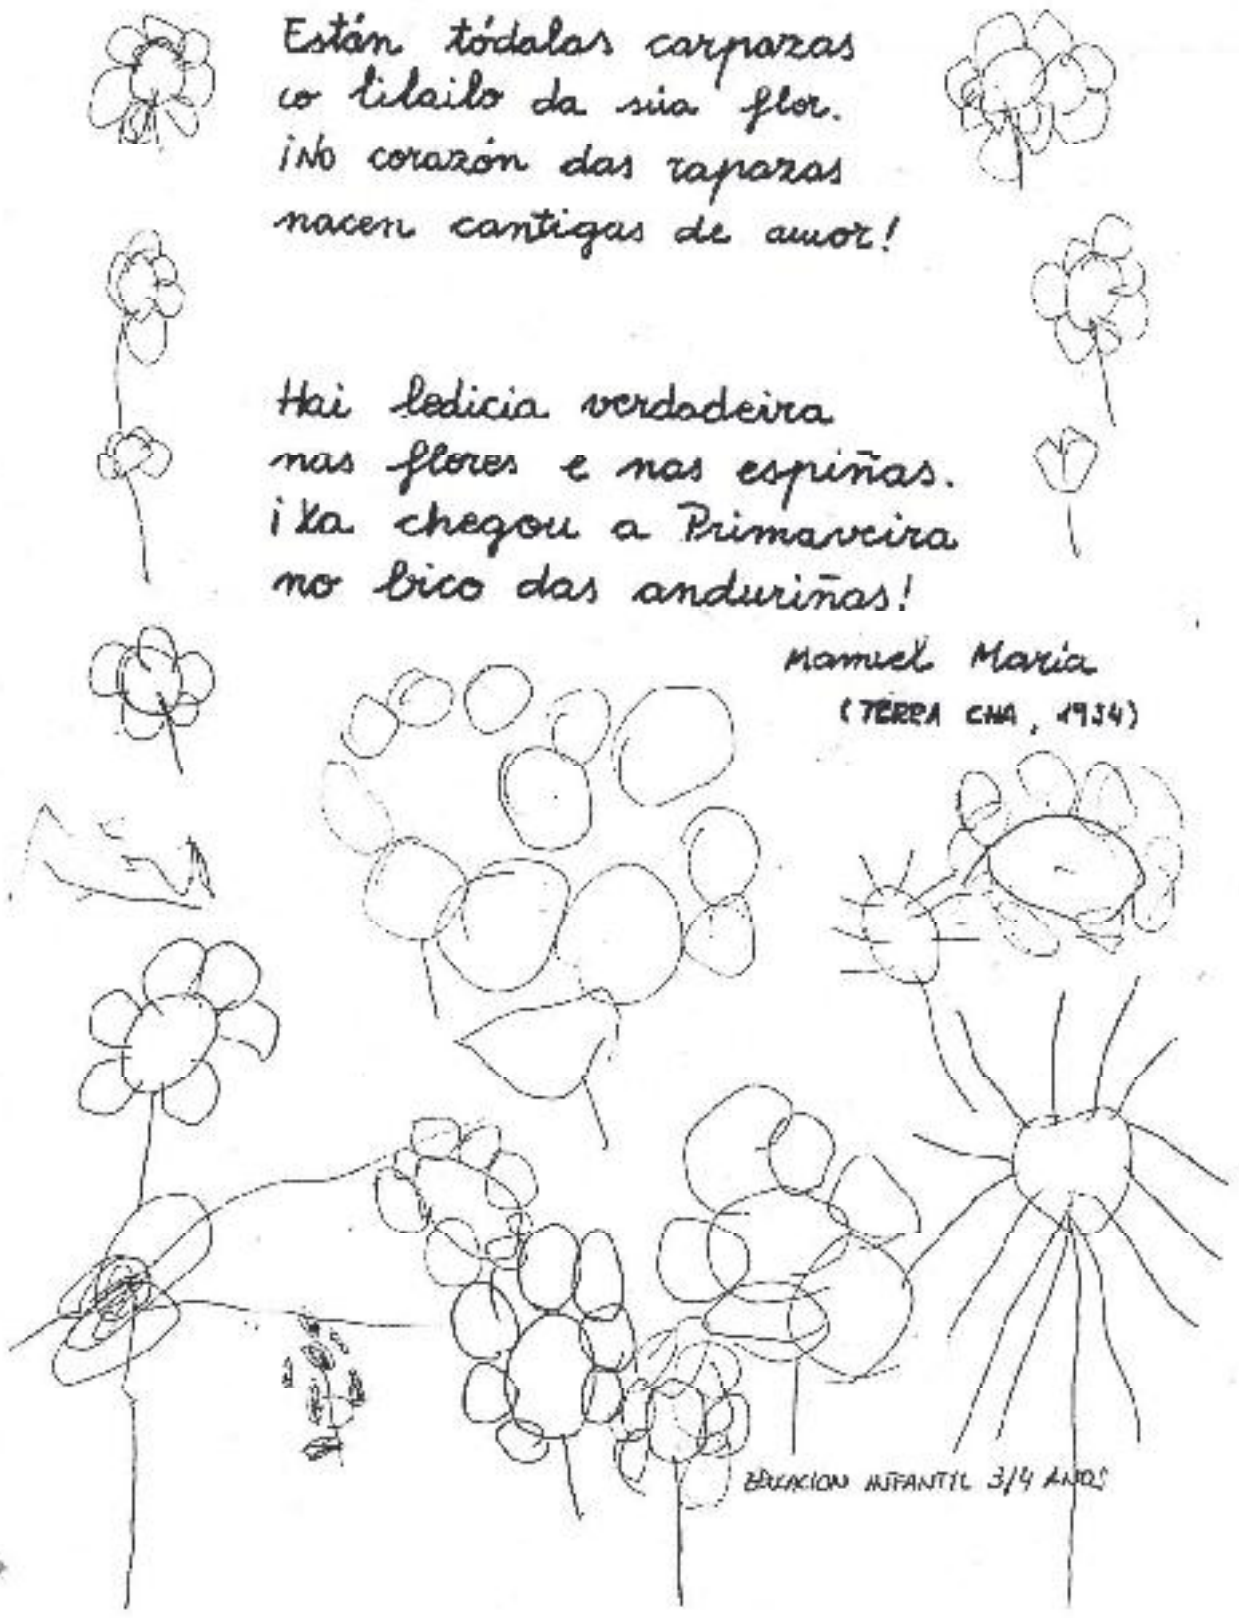 Están tódalas carpazas
co lilailo da súa flor.
¡No corazón das rapazas
nacen cantigas de amor!
Hai ledicia verdadeira
nas flores e nas espiñas.
¡Xa chegou a Primaveira
no bico das anduriñas!
Manuel María
(TERRA CHA, 1954)
EDUCACION INFANTIL 3/4 ANOS